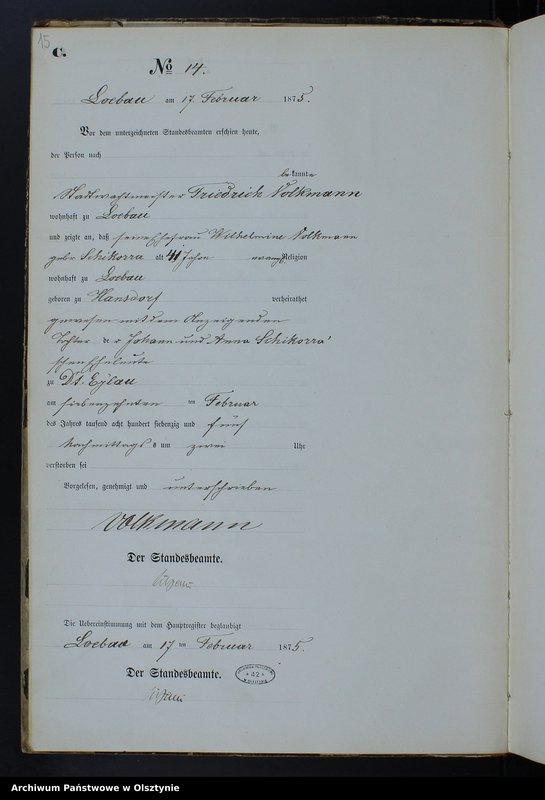 15
C.
No 14.
Loebau am 17. Februar 1875.
Vor dem unterzeichneten Standesbeamten erschien heute,
der Person nach
bekannte
Stadtwachtmeister Friedrich Volkmann
wohnhaft zu Loebau
und zeigte an, daß seine Ehefrau Wilhelmine Volkmann
gebr Schikorra alt 41 Jahre evangl. Religion
wohnhaft zu Loebau
geboren zu Hansdorf verheirathet
gewesen mit dem Anzeigenden
Tochter der Johann und Anna Schikorra'
schen Eheleute
zu Dt. Eylau
am siebenzehnten ten Februar
des Jahres tausend acht hundert siebenzig und fünf
Nachmittags um zwei Uhr
verstorben sei
Vorgelesen, genehmigt und unterschrieben
Volkmann
Der Standesbeamte.
Die Uebereinstimmung mit dem Hauptregister beglaubigt
Loebau am 17 ten Februar 1875.
Der Standesbeamte.
* 42 *
Archiwum Państwowe w Olsztynie